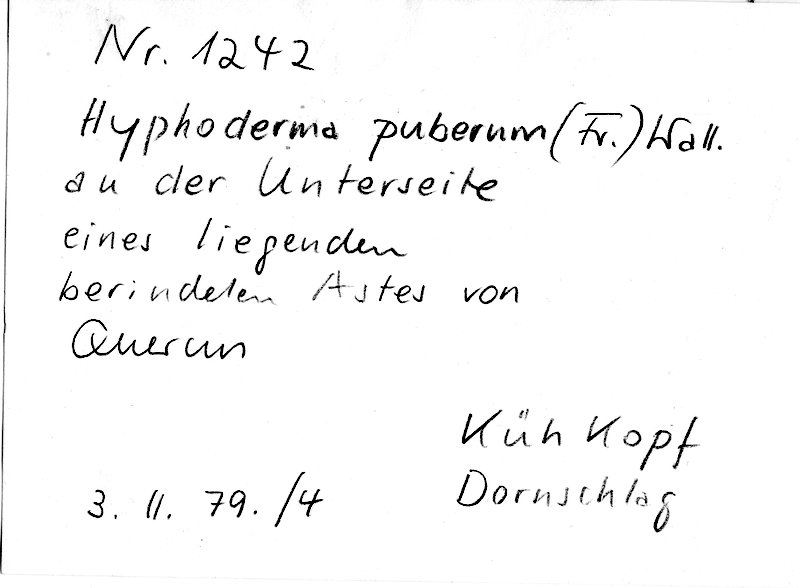 Nr. 1242
Hyphoderma puberum (Fr.) Wall.
an der Unterseite
eines liegenden
berindeten Astes von
Quercus
Kühkopf
3. 11. 79. /4 Dornschlag